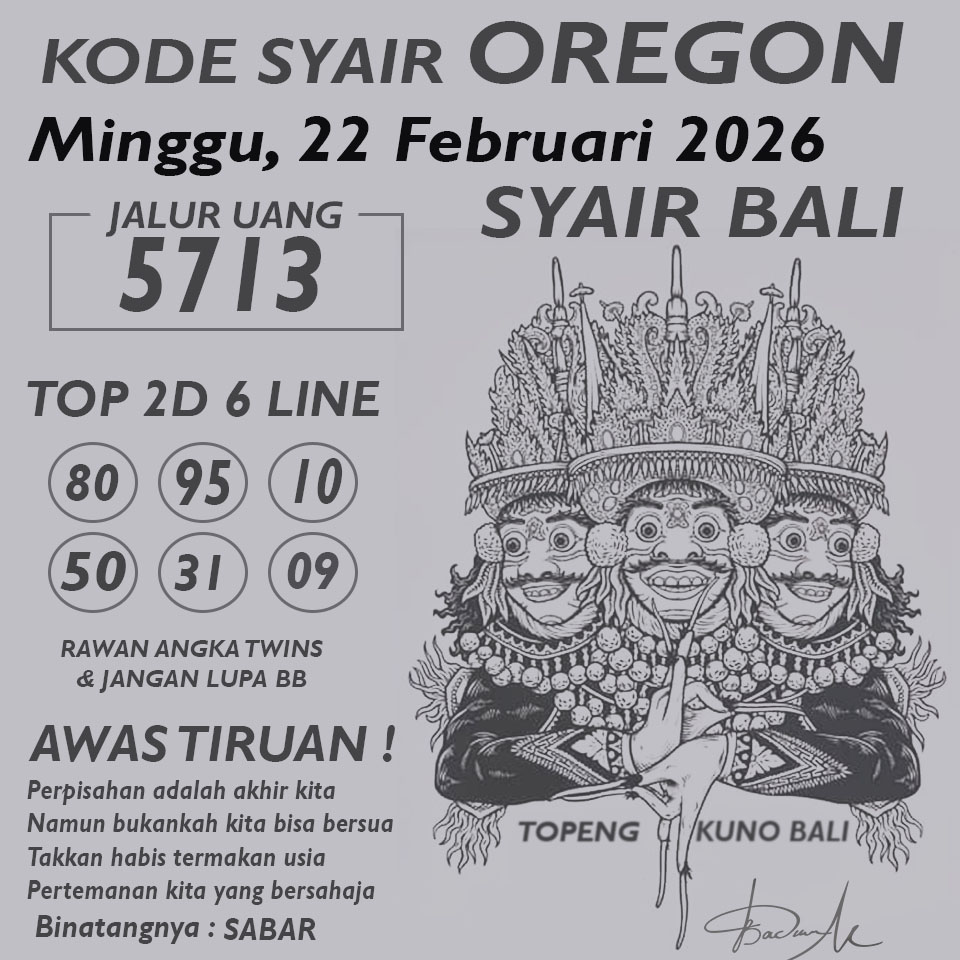 KODE SYAIR OREGON
Minggu, 22 Februari 2026
SYAIR BALI
JALUR UANG
5713
TOP 2D 6 LINE
80 95 10
50 31 09
RAWAN ANGKA TWINS
& JANGAN LUPA BB
AWAS TIRUAN !
Perpisahan adalah akhir kita
Namun bukankah kita bisa bersua
Takkan habis termakan usia
Pertemanan kita yang bersahaja
Binatangnya : SABAR
TOPENG KUNO BALI